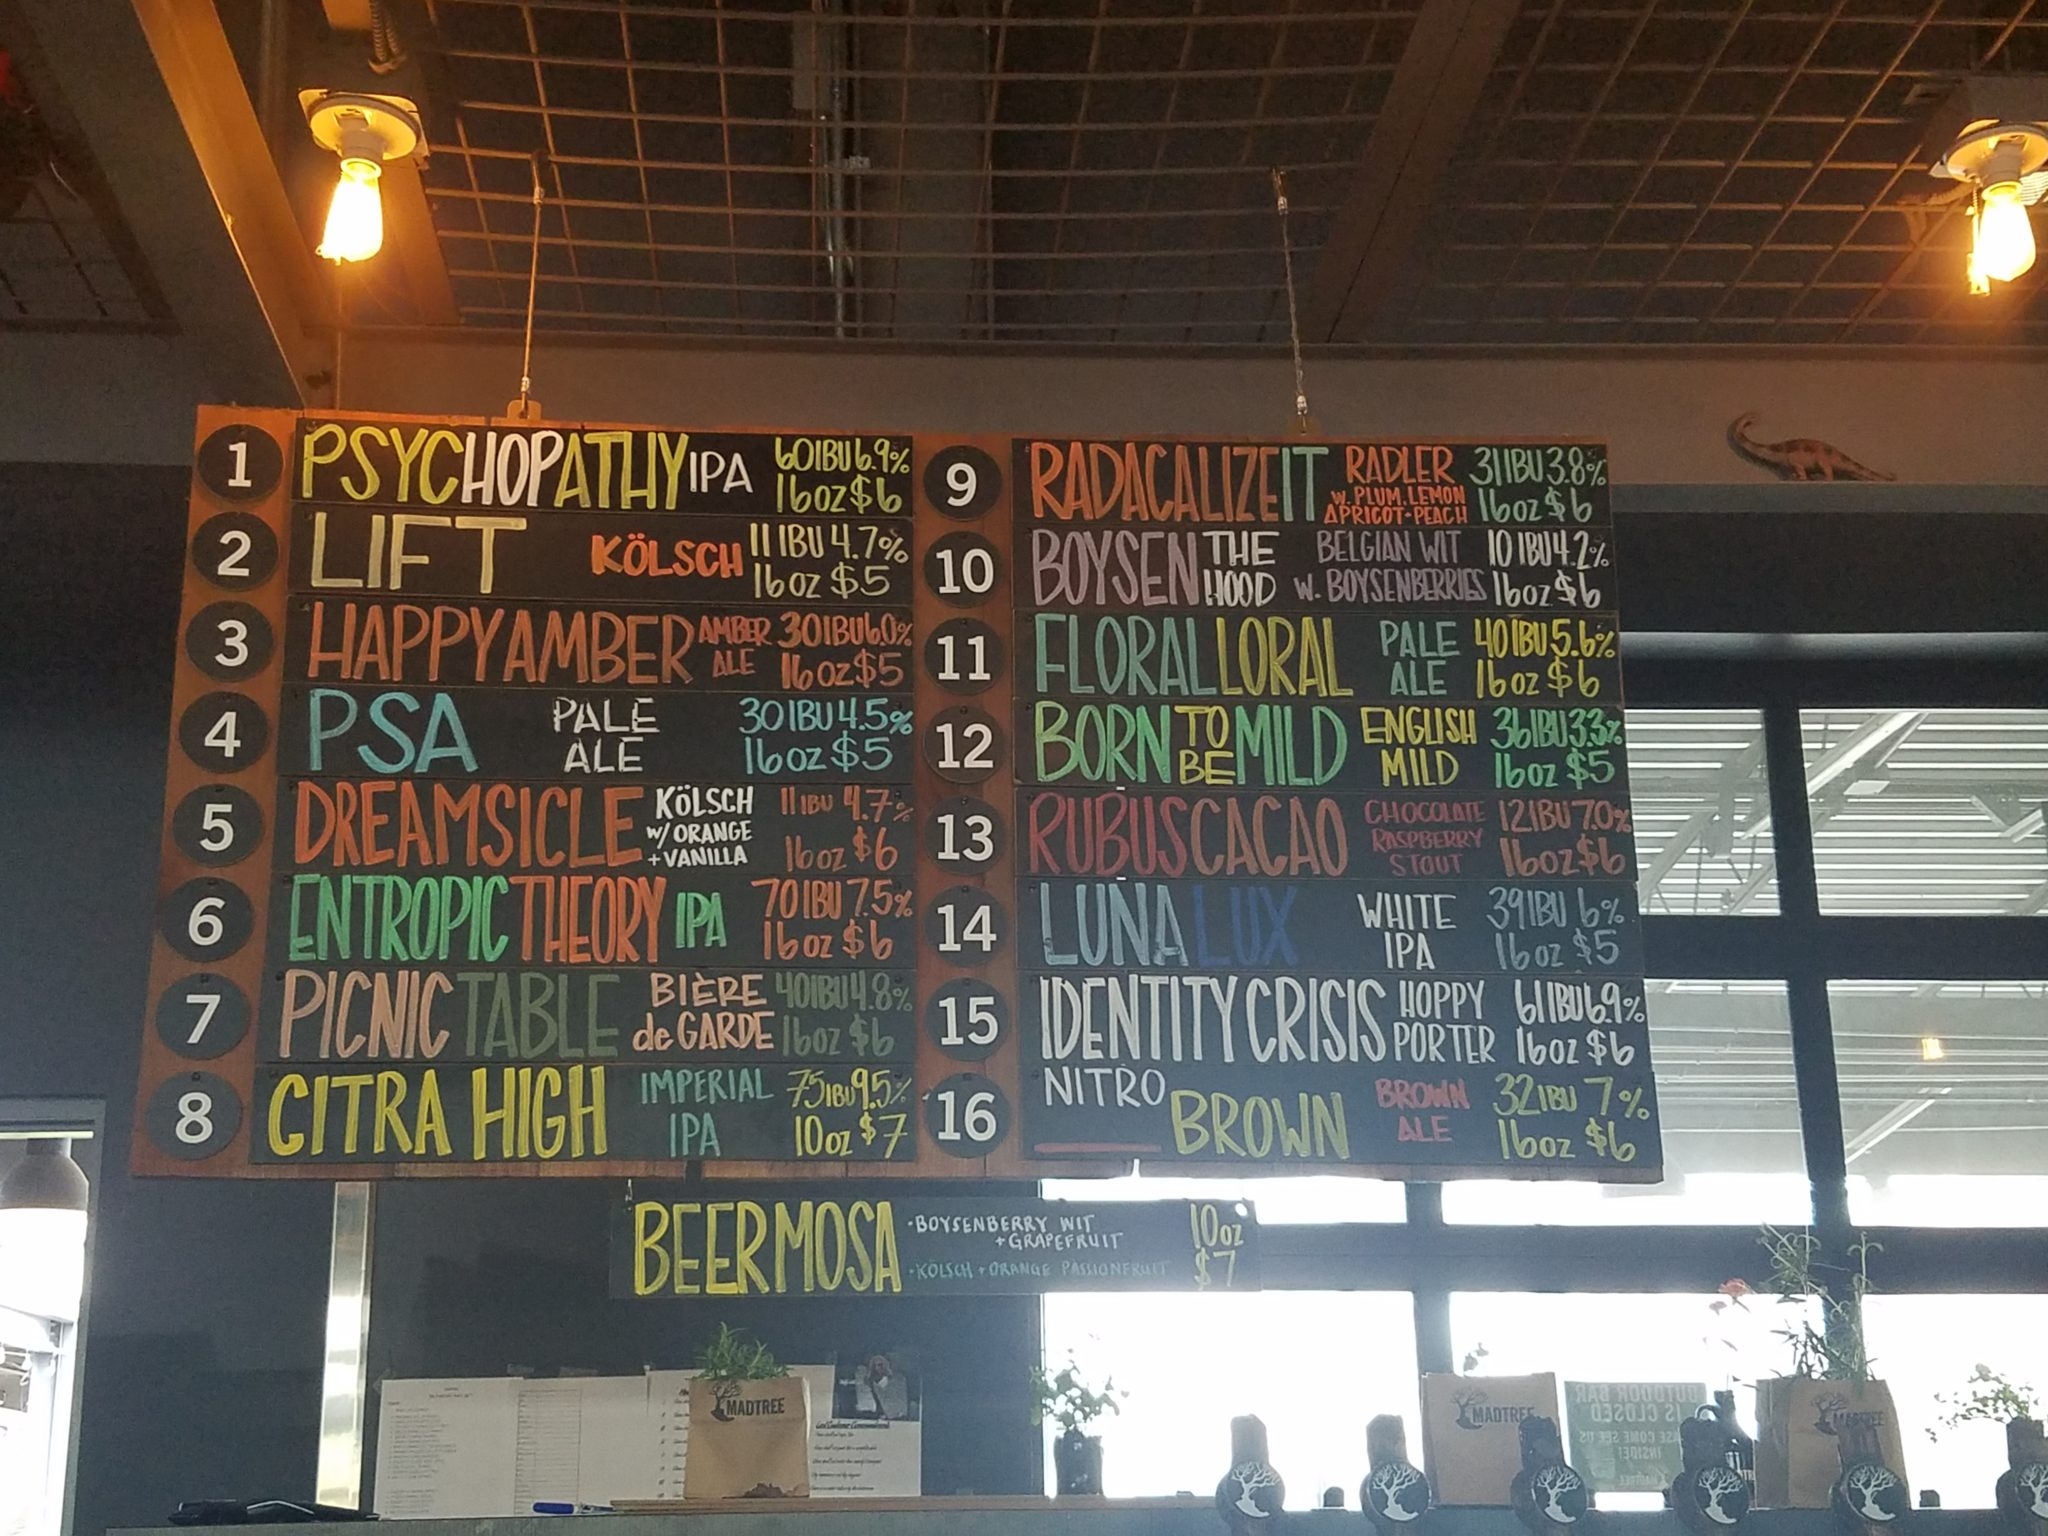 1 PSYCHOPATHY IPA 60IBU 6.9%
16oz $6
2 LIFT KÖLSCH 11IBU 4.7%
16oz $5
3 HAPPY AMBER AMBER ALE 30IBU 6.0%
16oz $5
4 PSA PALE ALE 30IBU 4.5%
16oz $5
5 DREAMSICLE KÖLSCH w/ ORANGE + VANILLA 11IBU 4.7%
16oz $6
6 ENTROPIC THEORY IPA 70IBU 7.5%
16oz $6
7 PICNIC TABLE BIÈRE de GARDE 40IBU 4.8%
16oz $6
8 CITRA HIGH IMPERIAL IPA 75IBU 9.5%
10oz $7
9 RADACALIZE IT RADLER w. PLUM. LEMON APRICOT-PEACH 31IBU 3.8%
16oz $6
10 BOYSEN THE HOOD BELGIAN WIT w. BOYSENBERRIES 10IBU 4.2%
16oz $6
11 FLORAL LORAL PALE ALE 40IBU 5.6%
16oz $6
12 BORN TO BE MILD ENGLISH MILD 36IBU 3.3%
16oz $5
13 RUBUS CACAO CHOCOLATE RASPBERRY STOUT 12IBU 7.0%
16oz $6
14 LUNA LUX WHITE IPA 39IBU 6%
16oz $5
15 IDENTITY CRISIS HOPPY PORTER 61IBU 6.9%
16oz $6
16 NITRO BROWN BROWN ALE 32IBU 7%
16oz $6
BEERMOSA
·BOYSENBERRY WIT
+ GRAPEFRUIT
·KÖLSCH + ORANGE PASSIONFRUIT
10oz
$7
MADTREE
MADTREE
OUTDOOR BAR
IS CLOSED
COME SEE US
INSIDE!
MADTREE
MADTREE